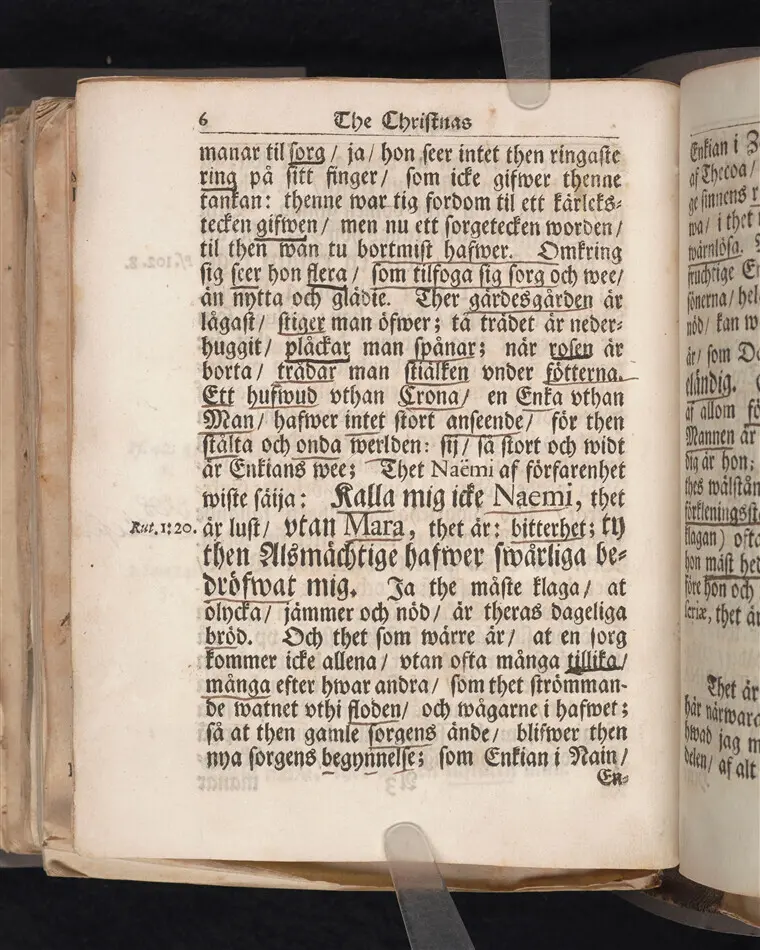 6 The Christnas
manar til sorg/ ja/ hon seer intet then ringaste
ring på sitt finger/ som icke gifwer thenne
tankan: thenne war tig fordom til ett kärleks-
tecken gifwen/ men nu ett sorgetecken worden/
til then wän tu bortmist hafwer. Omkring
sig seer hon flera/ som tilfoga sig sorg och wee/
än nytta och glädie. Ther gärdesgården är
lägast/ stiger man öfwer; tå trädet är neder-
huggit/ plåckar man spånar; när rosen är
borta/ trädar man stiälken vnder fötterna.
Ett hufwud vthan Crona/ en Enka vthan
Man/ hafwer intet stort anseende/ för then
stålta och onda werlden: sij/ så stort och widt
är Enkians wee; Thet Naëmi af förfarenhet
wiste säija: Kalla mig icke Naemi, thet
Rut. 1: 20. är lust/ vtan Mara, thet är: bitterhet; ty
then Alsmächtige hafwer swårliga be-
dröfwat mig. Ja the måste klaga/ at
olycka/ jämmer och nöd/ är theras dageliga
bröd. Och thet som wärre är/ at en sorg
kommer icke allena/ vtan ofta många tillika/
många efter hwar andra/ som thet strömman-
de watnet vthi floden/ och wågarne i hafwet;
så at then gamle sorgens ände/ blifwer then
nya sorgens begynnelse; som Enkian i Nain/
En-
Enkian i
af Thecoa/
ge sinnens
wa/ i thet
wärnlösa.
fruchtige
sönerna/
nöd/ kan
är/ som
eländig.
af allom
Mannen är
dig är hon;
thes
klagan)
hon mäst
före hon och
thet
Thet är
här
hwad jag
delen/ af alt